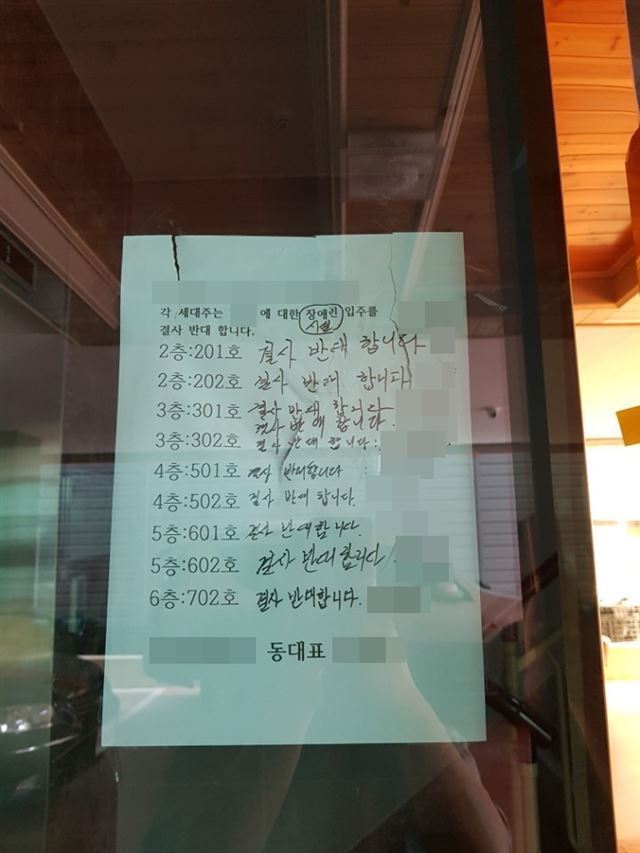 각 세대주는 에 대한 장애인 입주를
시설
결사 반대 합니다.
2층:201호 결사 반대 합니다
2층:202호 결사 반대 합니다
3층:301호 결사 반대 합니다
결사 반대 합니다
3층:302호 결사 반대 합니다.
4층:501호 결사 반대합니다
4층:502호 결사 반대 합니다.
5층:601호 결사 반대합니다.
5층:602호 결사 반대합니다.
6층:702호 결사 반대합니다.
동대표